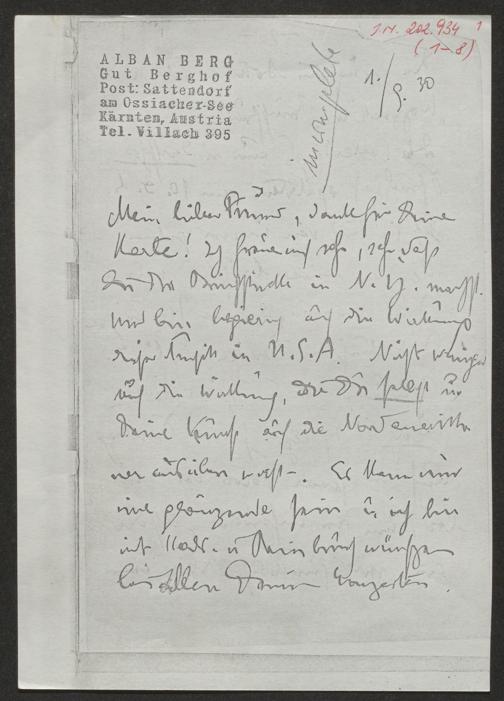 I.N. 202.934 1
(1-8)
ALBAN BERG
Gut Berghof
Post: Sattendorf
am Ossiacher-See
Kärnten, Austria
Tel. Villach 395
incomplete
1./9. 30
Mein lieber Freund, Dank für Deine
Karte! Ich freue mich sehr, sehr, daß
Du die Bruchstücke in N. Y. machst.
und bin begierig auf die Wirkung
dieser Musik in U.S.A. Nicht weniger
auf die Wirkung, die Du selbst u.
Deine Kunst auf die Nordamerika
ner ausüben wirst. Es kann nur
eine glänzende sein u. ich bin
mit
bei allen Deinen Konzerten.